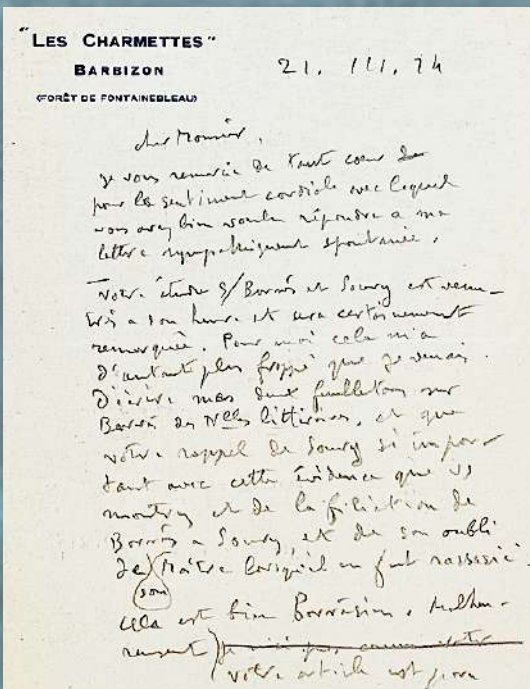 "LES CHARMETTES"
BARBIZON
(FORÊT DE FONTAINEBLEAU)
21. III. 24
cher Monsieur,
je vous remercie de tout coeur de
pour les sentiments cordiale avec lequel
vous avez bien voulu répondre à ma
lettre sympathiquement spontanée.
Votre étude s/ Barrès et Soury est venu
très à son heure et sera certainement
remarquée. Pour moi cela m'a
d'autant plus frappé que je venais
d'écrire mes deux feuilletons sur
Barrès des Nlles littéraires, et que
votre rappel de Soury si impor-
tant avec cette évidence que vs
montrez et de la filiation de
Barrès a Soury, et de son oubli
de (son) Maître lorsqu'il en fut rassasié.
Cela est bien Barrésien. Malheu-
reusement votre
votre article est